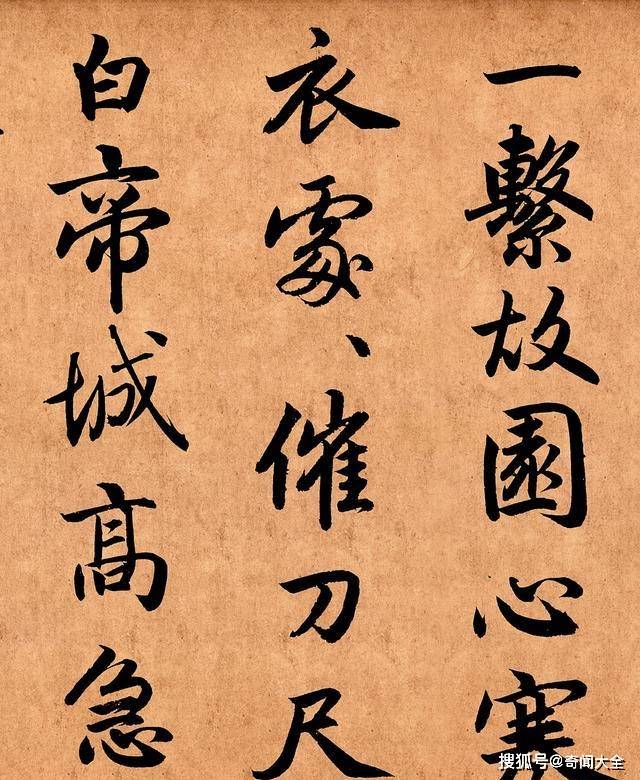 一繫故園心寒
衣處、催刀尺
白帝城高急
搜狐号@奇闻大全